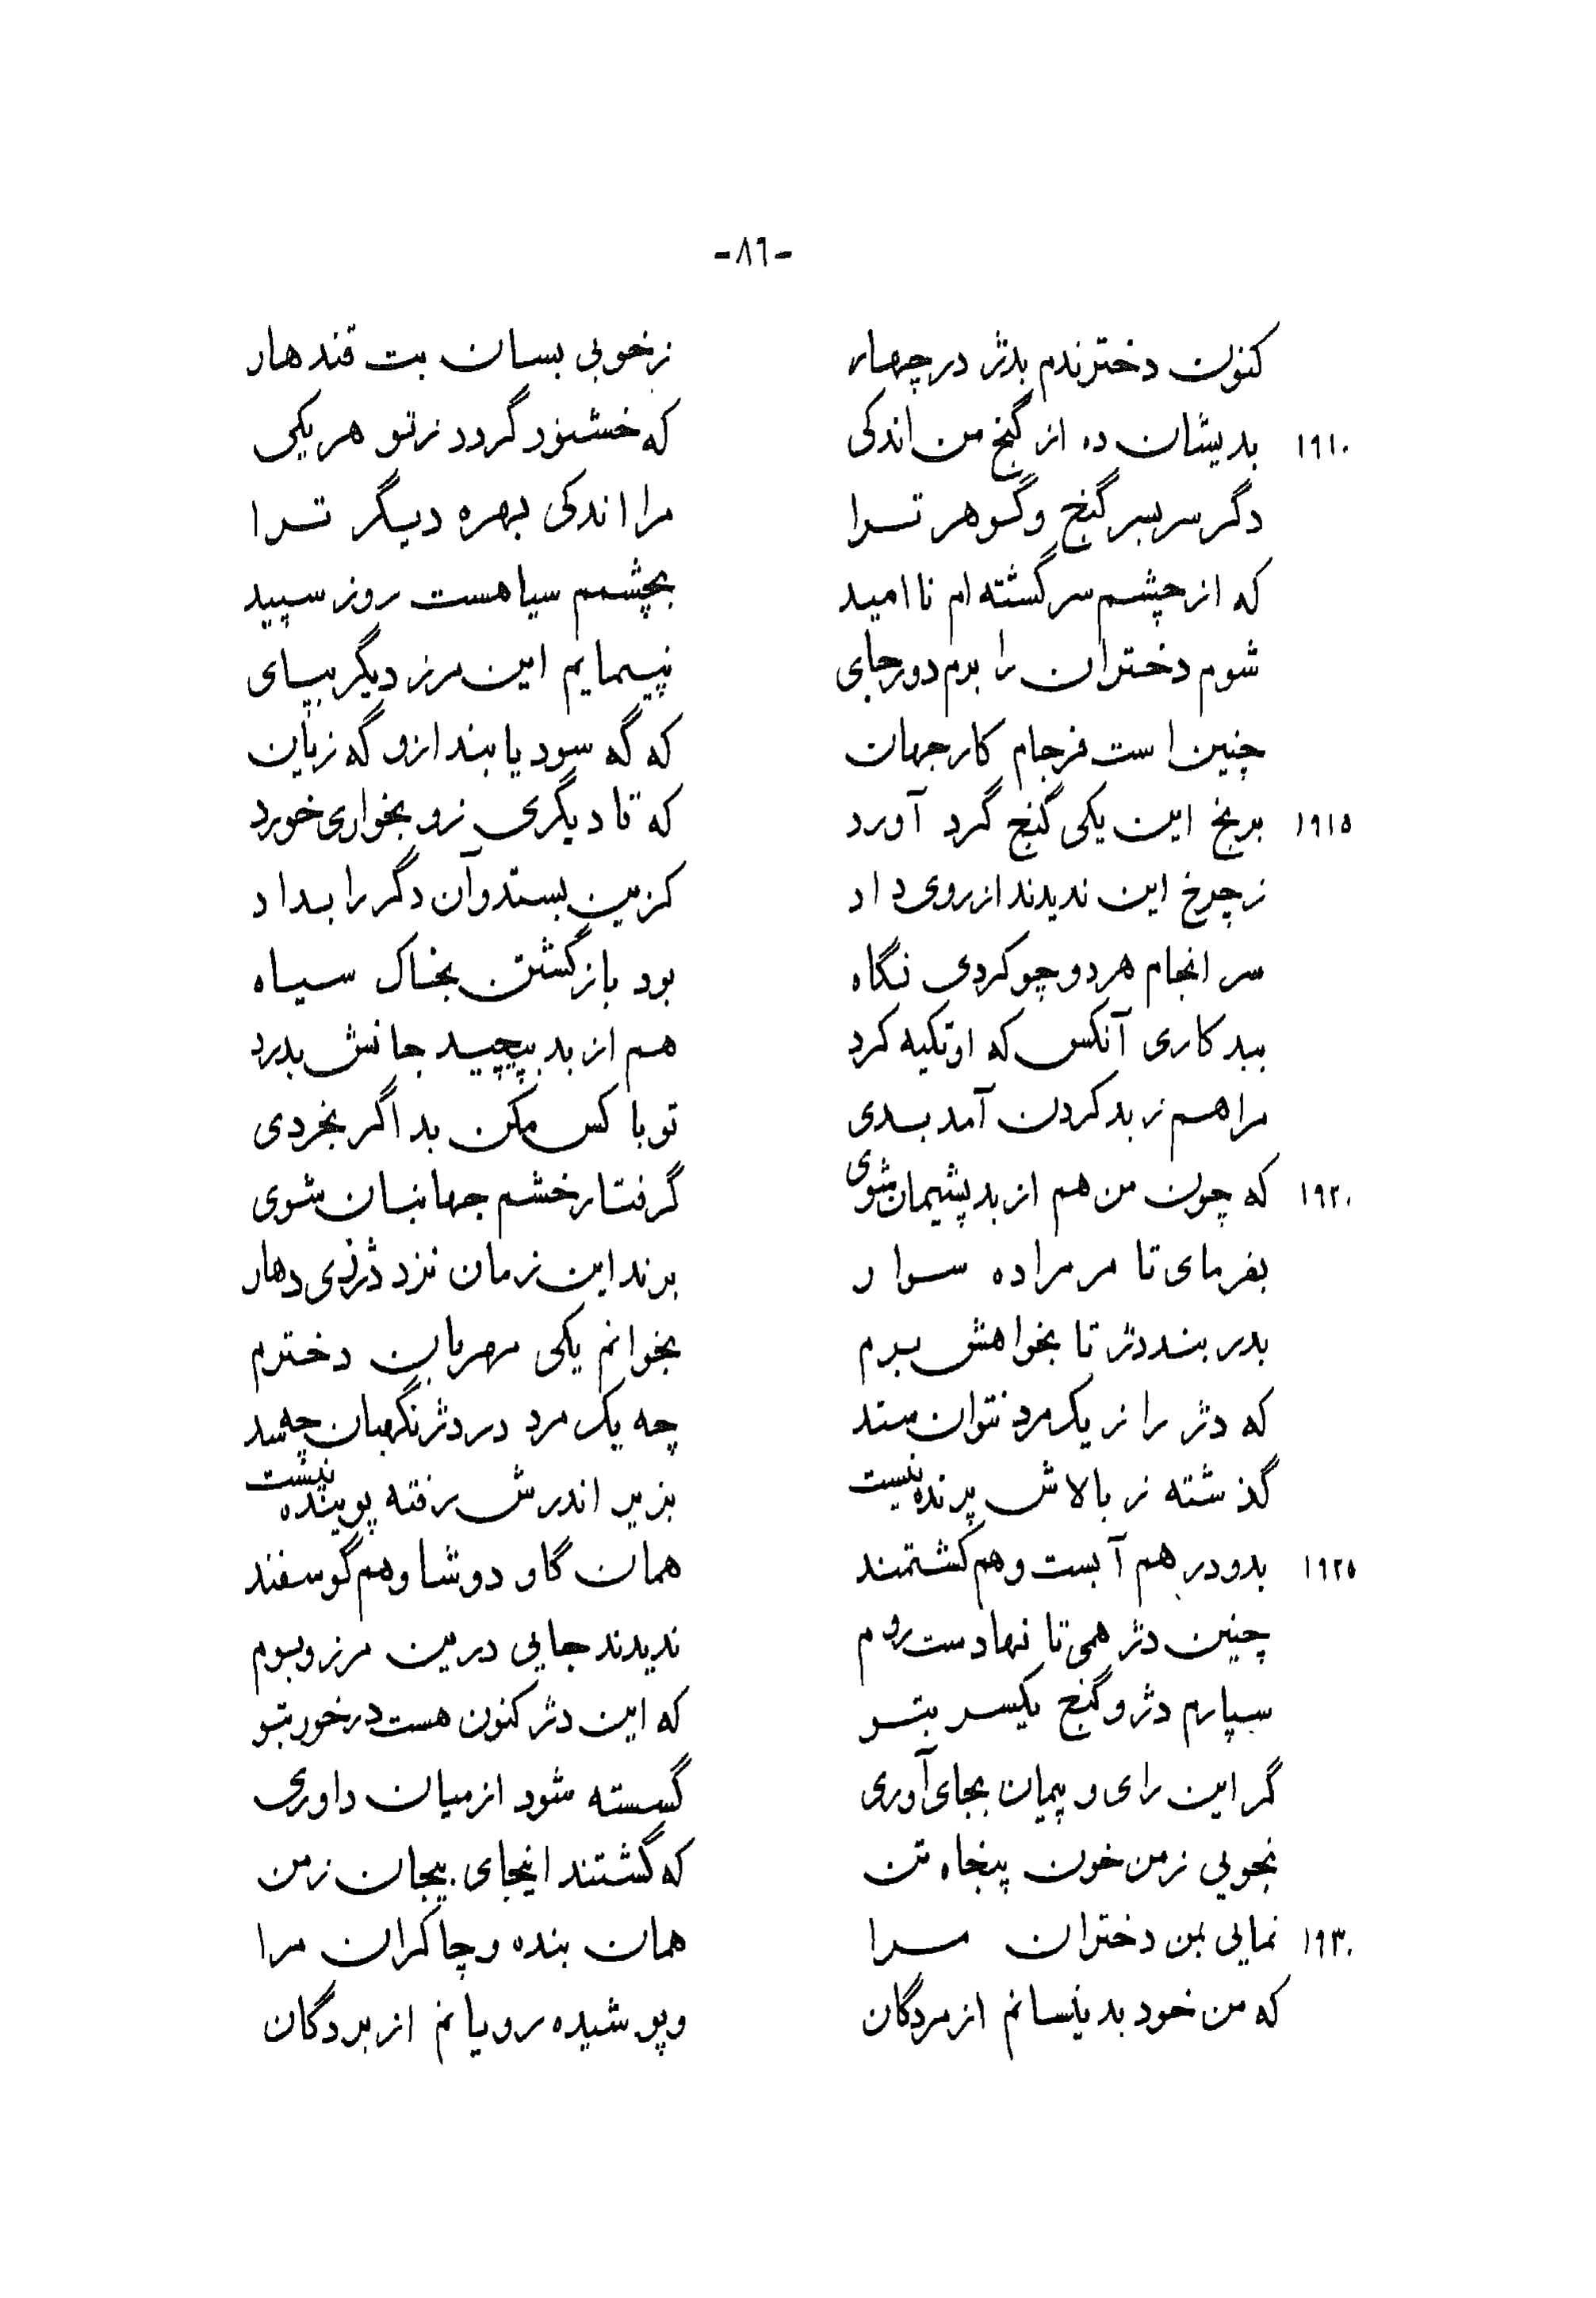 -٨٦-
کنون دخترندم بدژ در چهار زخوبی بسان بت قندهار
١٩١٠ بدیشان ده از گنج من اندکی که خشنود گردد زتو هر یکی
دگر سربسر گنج وگوهر ترا مرا اندکی بهره دیگر ترا
که از چشم سر گشته ام نا امید بچشمم سیاهست روز سپید
شوم دختران را برم دور جای نپیمایم این مرز دیگر بپای
چنین است فرجام کار جهان که گه سود یابند ازو گه زیان
١٩١٥ برنج این یکی گنج گرد آورد که تا دیگری زو بخواری خورد
زچرخ این ندیدند از روی داد کزین بستد وآن دگر را بداد
سر انجام هر دو چو کردی نگاه بود بازگشتن بخاک سیاه
ببد کاری آنکس که او تکیه کرد هم از بد بپیچید جانش بدرد
مرا هم ز بد کردن آمد بدی تو با کس مکن بد اگر بخردی
١٩٢٠ که چون من هم از بد پشیمان شوی گرفتار خشم جهانبان شوی
بفرمای تا مر مرا ده سوار برند این زمان نزد دژ زی دهار
بدر بند دژ تا بخواهش برم بخوانم یکی مهربان دخترم
که دژ را ز یک مرد نتوان ستد چه یک مرد در دژ نگهبان چه سد
گذشته ز بالاش پرنده نیست بزیر اندرش رفته پوینده نیست
١٩٢٥ بدو در هم آبست وهم کشتمند همان گاو دوشا وهم گوسفند
چنین دژ همی تا نهادست روم ندیدند جایی درین مرز وبوم
سپارم دژ وگنج یکسر بتو که این دژ کنون هست درخور بتو
گر این رای و پیمان بجای آوری گسسته شود از میان داوری
نجویی زمن خون پنجاه تن که گشتند اینجای بیجان زمن
١٩٣٠ نمایی بمن دختران مرا همان بنده وچاکران مرا
که من خود بدینسانم از مردگان وپوشیده رویانم از بردگان